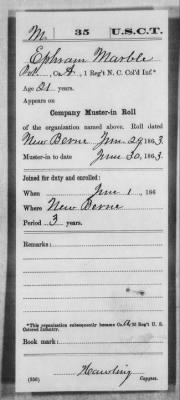 M. 35 U.S.C.T.
Ephram Marble
Pvt., Co. A, 1 Reg't N. C. Col'd Inf.*
Age 21 years.
Appears on
Company Muster-in Roll
of the organization named above. Roll dated
New Berne June 29, 1863.
Muster-in to date June 30, 1863.
Joined for duty and enrolled:
When June 1, 186
Where New Berne
Period 3 years.
Remarks:
*This organization subsequently became Co. A, 35 Reg't U. S. Colored Infantry.
Book mark:
(356) Copyist.